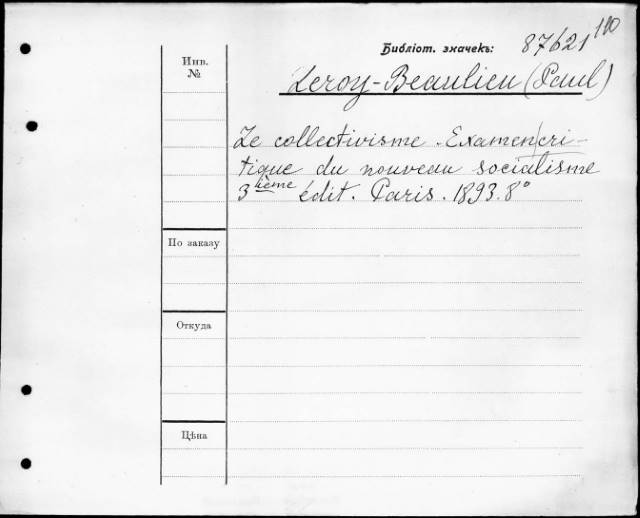 Библіот. значекъ: 87621 110
Инв.
№
Leroy-Beaulieu (Paul)
Le collectivisme. Examen cri-
tique du nouveau socialisme
3ième édit. Paris. 1893. 8°
По заказу
Откуда
Цѣна